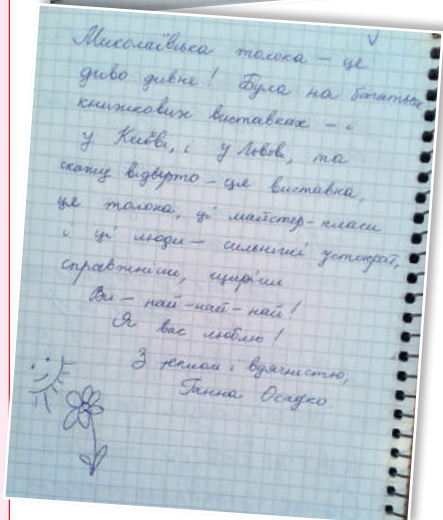 Миколаївська толока – це
диво дивне! Була на багатьох
книжкових виставках – і
у Києві, і у Львові, та
скажу відверто – ця виставка,
ця толока, ці майстер-класи
і ці люди – сильніші устократ,
справжніші, щиріші
Ви – най-най-най!
Я вас люблю!
З теплом і вдячністю,
Ганна Осадко